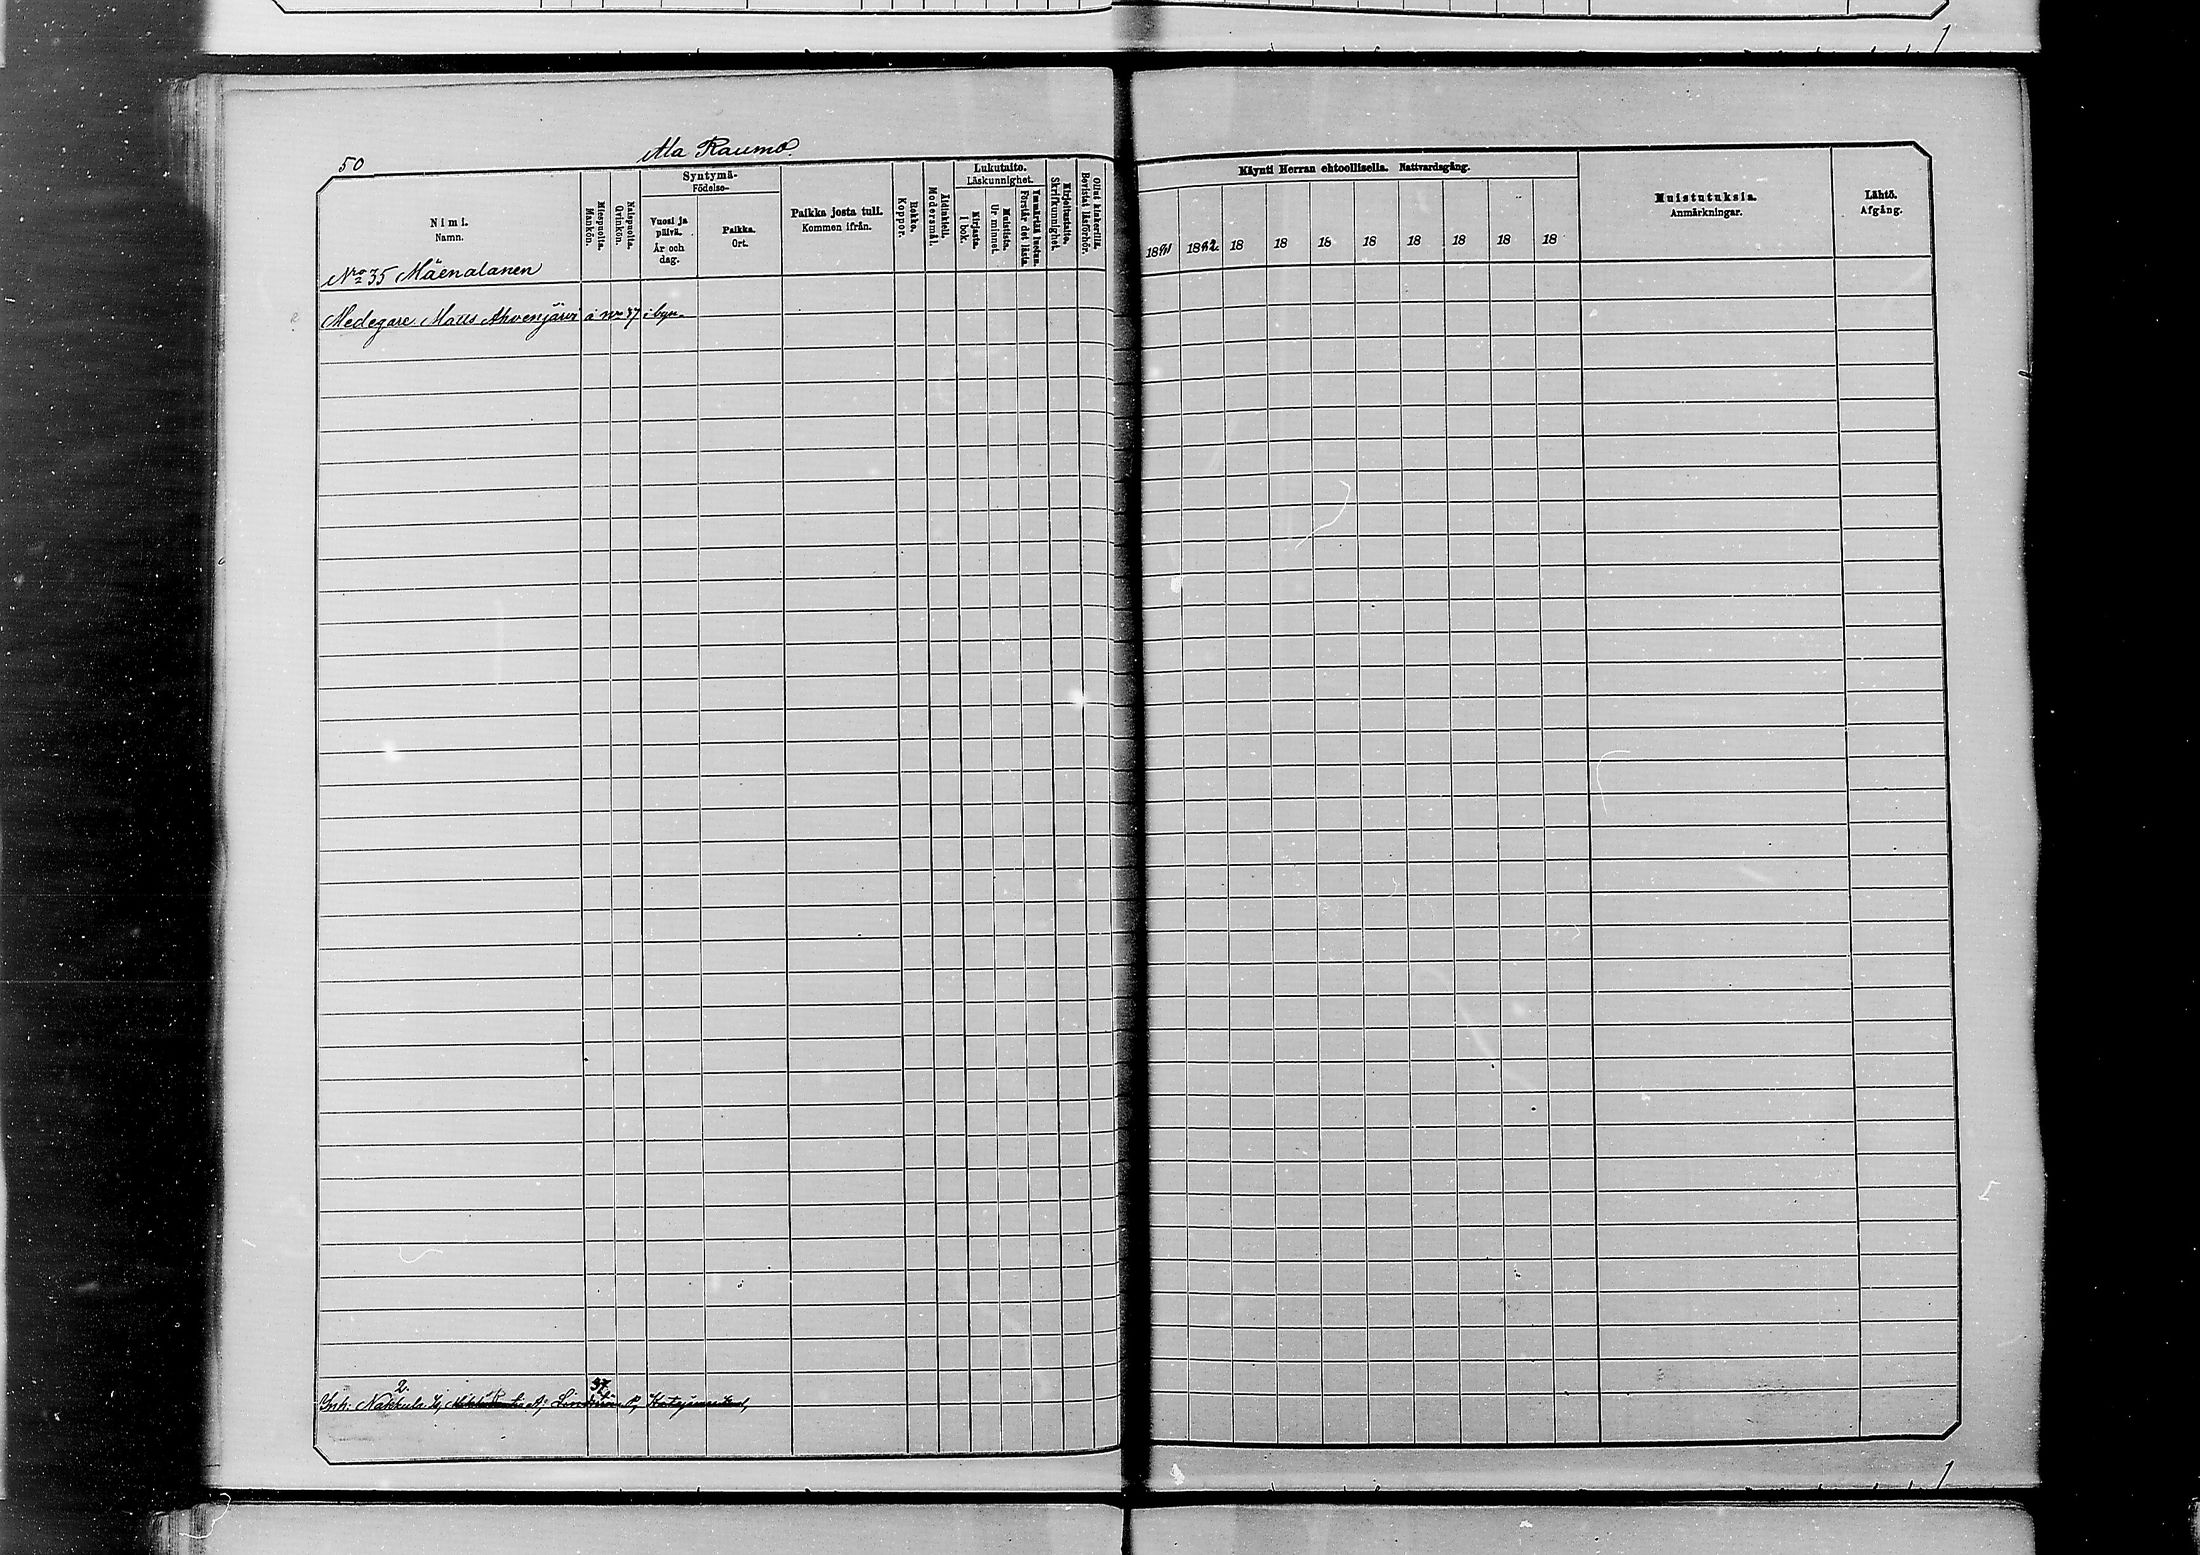 50
Ala Raumo.
Nimi.
Namn.
Miespuolia.
Mankön.
Naispuolia.
Qvinkön.
Syntymä-
Födelse-
Vuosi ja päivä.
År och dag.
Paikka.
Ort.
Paikka josta tuli.
Kommen ifrån.
Rokko.
Koppor.
Äidinkieli.
Modersmål.
Lukutaito.
Läskunnighet.
Kirjasta.
I bok.
Muistista.
Ur minnet.
Ymmärtää luetun.
Förstår det lästa.
Kirjoitustaito.
Skrifkunnighet.
Ollut kinkerillä.
Bevistat läsförhör.
Käynti Herran ehtoollisella. Nattvardsgång.
1891 1892 18 18 18 18 18 18 18 18
Muistutuksia.
Anmärkningar.
Lähtö.
Afgång.
Nro 35 Mäenalanen
Medegare Matts Ahvenjärvi å No 37 i byn.
2. 37
Inh: Nakkula